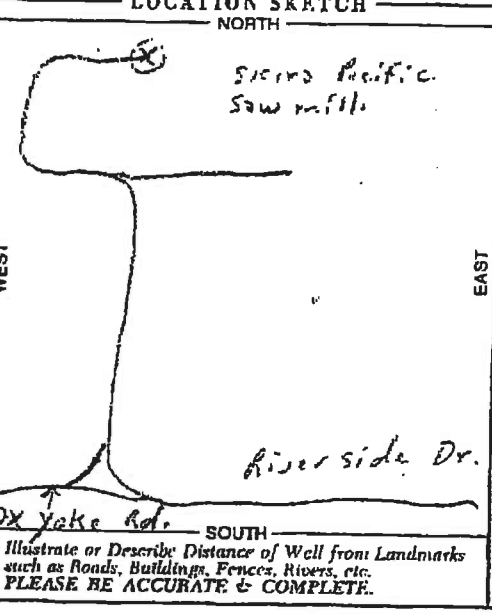 LOCATION SKETCH
NORTH
Sierra Pacific
Saw mill
WEST
EAST
Riverside Dr.
Ox Yoke Rd.
SOUTH
Illustrate or Describe Distance of Well from Landmarks
such as Roads, Buildings, Fences, Rivers, etc.
PLEASE BE ACCURATE & COMPLETE.